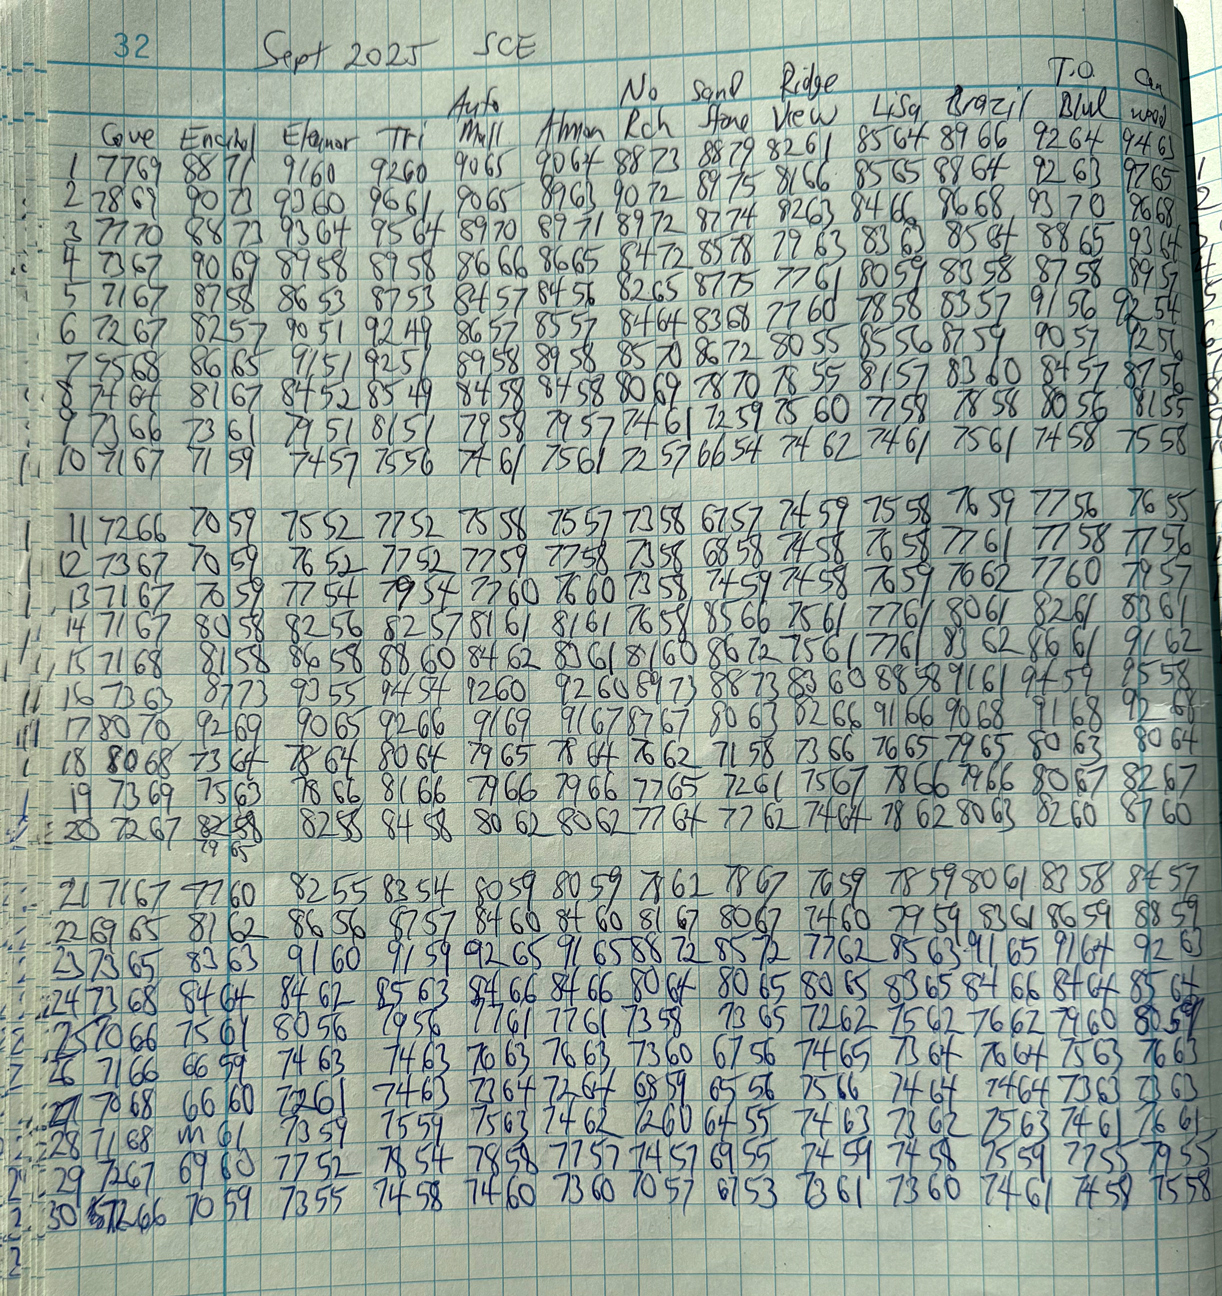 32 Sept 2025 SCE
T.O. Can
No Sand Ridge
Auto
Cove Encinal Eleanor Tri Mall Almon Rch Stone View Lisa Brazil Blvd wood
1 7769 8871 9160 9260 9065 9064 8873 8879 8261 8564 8966 9264 9463
2 7869 9073 9360 9661 9065 8963 9072 8975 8166 8565 8864 9263 9765
3 7770 8873 9364 9564 8970 8971 8972 8774 8263 8466 8668 9370 9668
4 7367 9069 8958 8958 8666 8665 8472 8578 7963 8363 8564 8865 9364
5 7167 8758 8653 8753 8457 8456 8265 8775 7761 8059 8358 8758 8957
6 7267 8257 9051 9249 8657 8557 8464 8368 7760 7858 8357 9156 9254
7 7568 8665 9151 9251 8958 8958 8570 8672 8055 8556 8759 9057 9256
8 7464 8167 8452 8549 8458 8458 8069 7870 7855 8157 8360 8457 8756
9 7366 7361 7951 8151 7958 7957 7461 7259 7560 7758 7858 8056 8155
10 7167 7159 7457 7556 7461 7561 7257 6654 7462 7461 7561 7458 7558
11 7266 7059 7552 7752 7558 7557 7358 6757 7459 7558 7659 7756 7655
12 7367 7059 7652 7752 7759 7758 7358 6858 7458 7658 7761 7758 7756
13 7167 7659 7754 7954 7760 7660 7358 7459 7458 7659 7662 7760 7957
14 7167 8058 8256 8257 8161 8161 7658 8566 7561 7761 8061 8261 8361
15 7168 8158 8658 8860 8462 8361 8160 8672 7561 7761 8362 8661 9162
16 7363 8773 9355 9454 9260 9260 8973 8873 8360 8858 9161 9459 9558
17 8070 9269 9065 9266 9169 9167 8767 8063 8266 9166 9068 9168 9268
18 8068 7364 7864 8064 7965 7864 7662 7158 7366 7665 7965 8063 8064
19 7369 7563 7866 8166 7966 7966 7765 7261 7567 7866 7966 8067 8267
20 7267 8258 8258 8458 8062 8062 7764 7762 7464 7862 8063 8260 8760
79 65
21 7167 7760 8255 8354 8059 8059 7862 7867 7659 7859 8061 8358 8457
22 6965 8162 8656 8757 8460 8460 8167 8067 7460 7959 8361 8659 8859
23 7365 8363 9160 9159 9265 9165 8872 8572 7762 8563 9165 9164 9263
24 7368 8464 8462 8563 8466 8466 8064 8065 8065 8365 8466 8464 8564
25 7066 7561 8056 7956 7761 7761 7358 7365 7262 7562 7662 7960 8059
26 7166 6659 7463 7463 7663 7663 7360 6756 7465 7364 7664 7563 7663
27 7068 6660 7261 7463 7364 7264 6859 6556 7566 7464 7464 7363 7363
28 7168 m 61 7359 7559 7563 7462 7260 6455 7463 7362 7563 7461 7661
29 7267 6960 7752 7854 7858 7757 7457 6955 7459 7458 7559 7755 7955
30 7266 7059 7355 7458 7460 7360 7057 6753 7361 7360 7461 7458 7558